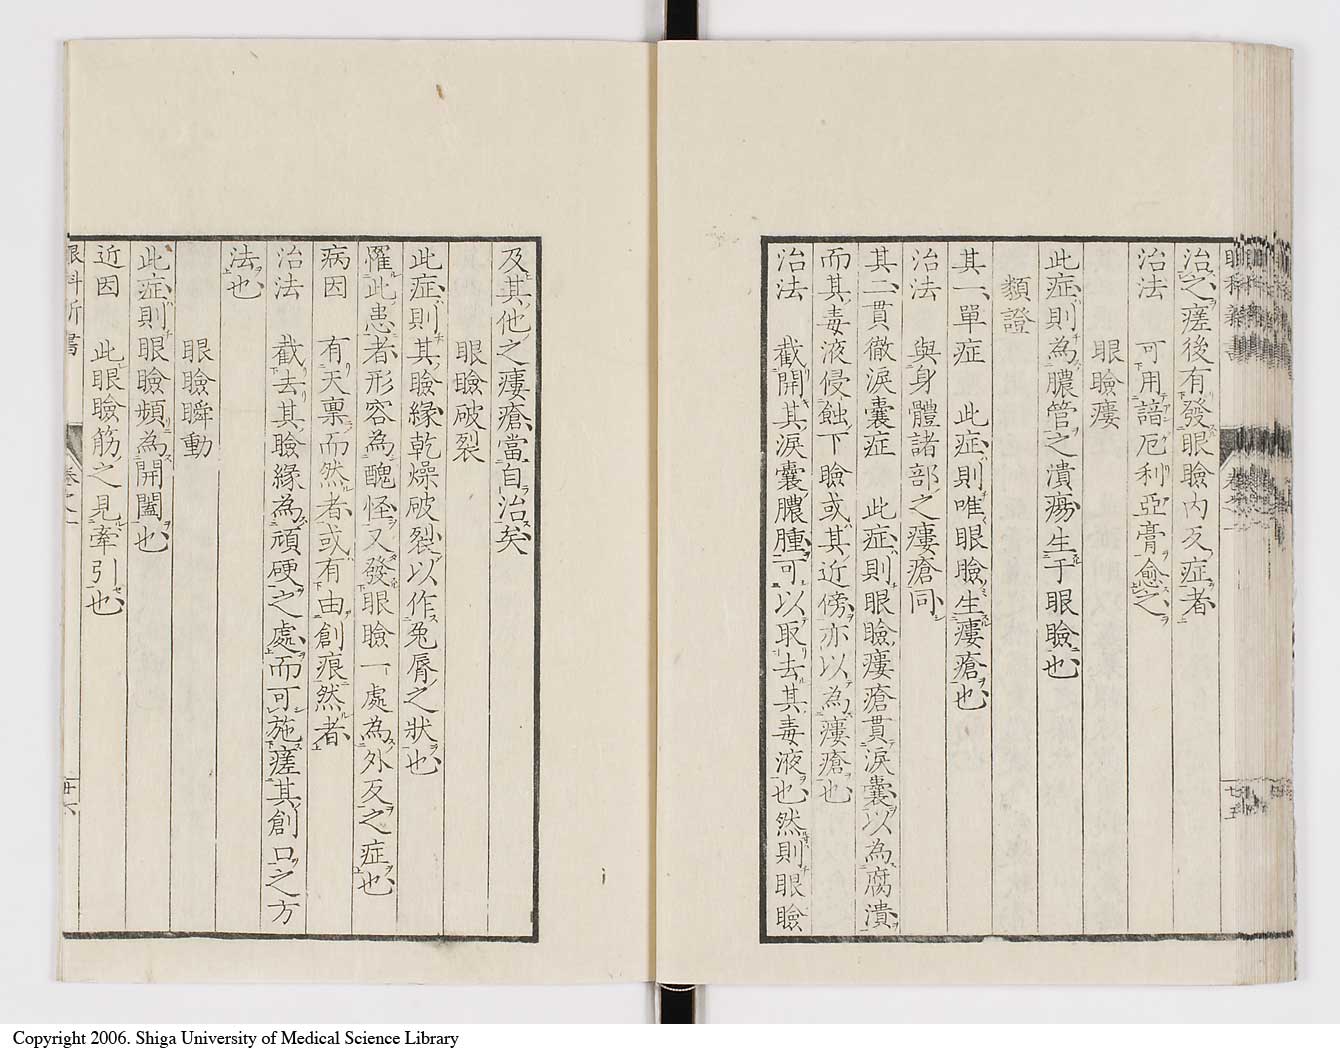 治之瘥後有發眼瞼內反症者
治法　可用諳厄利亞膏愈之
眼瞼瘻
此症則為膿管之潰瘍生于眼瞼也
類證
其一單症　此症則唯眼瞼生瘻瘡也
治法　與身體諸部之瘻瘡同
其二貫徹淚囊症　此症則眼瞼瘻瘡貫淚囊以為腐潰
而其毒液侵蝕下瞼或其近傍亦以為瘻瘡也
治法　截開其淚囊膿腫可以取去其毒液也然則眼瞼
及其他之瘻瘡當自治矣
眼瞼破裂
此症則其瞼緣乾燥破裂以作兔脣之狀也
罹此患者形容為醜怪又發眼瞼一處為外反之症也
病因　有天稟而然者或有由創痕然者
治法　截去其瞼緣為頑硬之處而可施瘥其創口之方
法也
眼瞼瞬動
此症則眼瞼頻為開闔也
近因　此眼瞼筋之見牽引也
眼科新書
卷之一
廿六
Copyright 2006. Shiga University of Medical Science Library